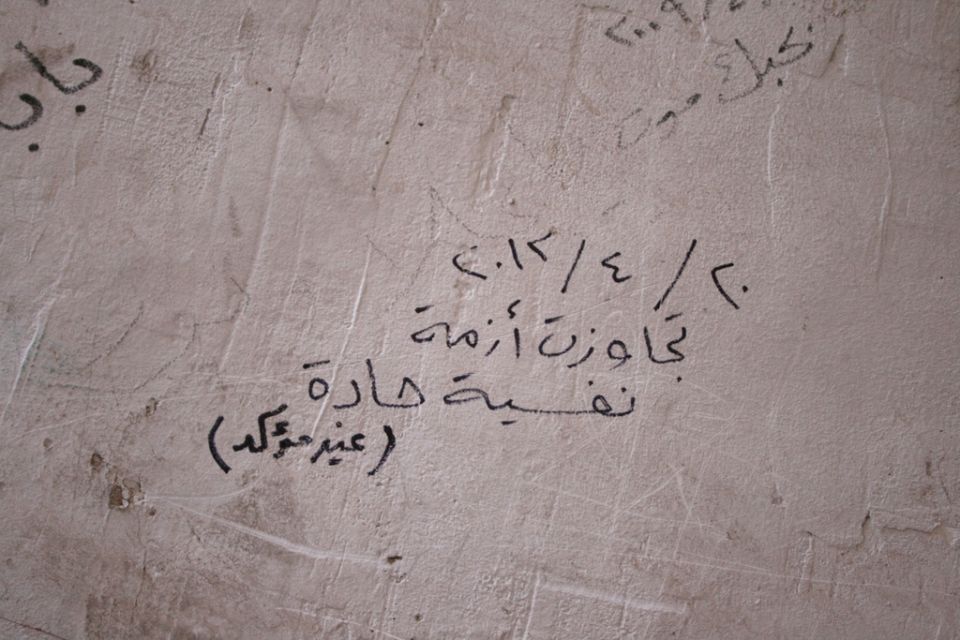 بحبك موت
٢٠/٤/٢٠١٢
تجاوزت أزمة
نفسية حادة
(غير مؤكد)